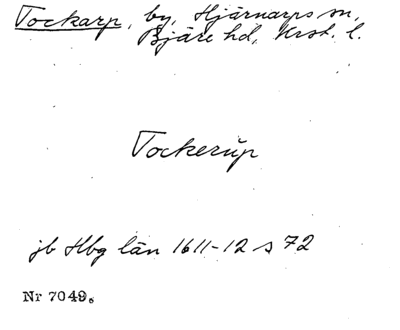 Tockarp, by, Hjärnarps sn,
Bjäre hd, Krst. l.
Tockerup
jb Hbg län 1611-12 s 72
Nr 7049.